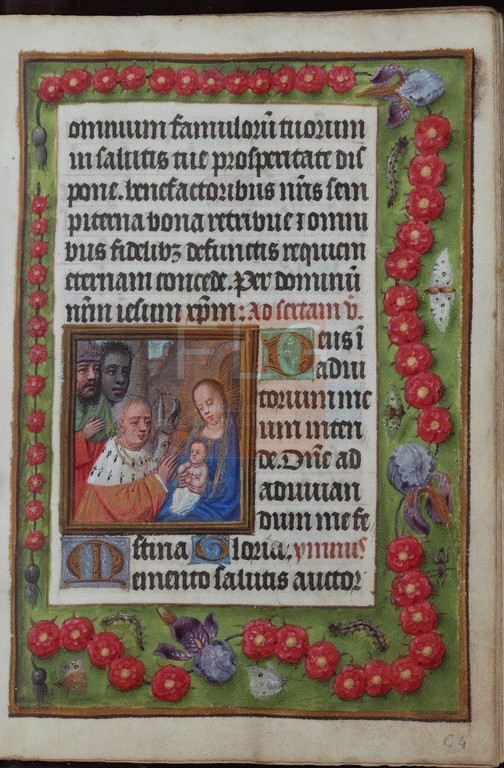 omnium famulorū tuorum
in salutis tue prosperitate dis
pone. benefactoribus nr̄is sem
piterna bona retribue ⁊ omni
bus fidelibꝫ defunctis requiem
eternam concede. Per dominū
nr̄m iesum xp̄m: Ad sextam v̄.
Deus ī
adiu
torium me
um inten
de. Dn̄e ad
adiuuan
dum me fe
stina Gloria. ymnus
Memento salutis auctor
64